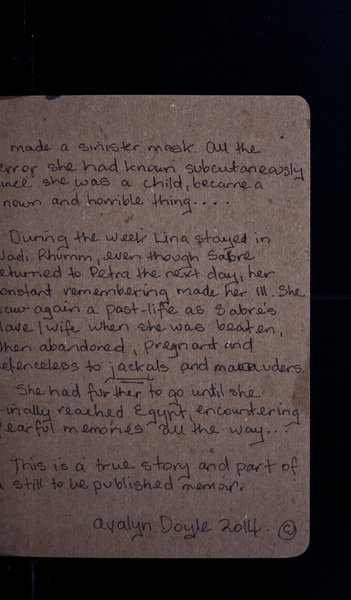 made a sinister mask. All the
error she had known subcutaneously
ince she was a child, became a
nown and horrible thing....
During the week Lina stayed in
Wadi Rhumm, even though Sabre
eturned to Petra the next day, her
onstant remembering made her ill. She
saw again a past-life as Sabre's
lave/wife when she was beaten,
then abandoned, pregnant and
efenceless to jackals and marauders.
She had further to go until she
inally reached Egypt, encountering
earful memories all the way...
This is a true story and part of
a still to be published memoir.
Avalyn Doyle 2014. ©